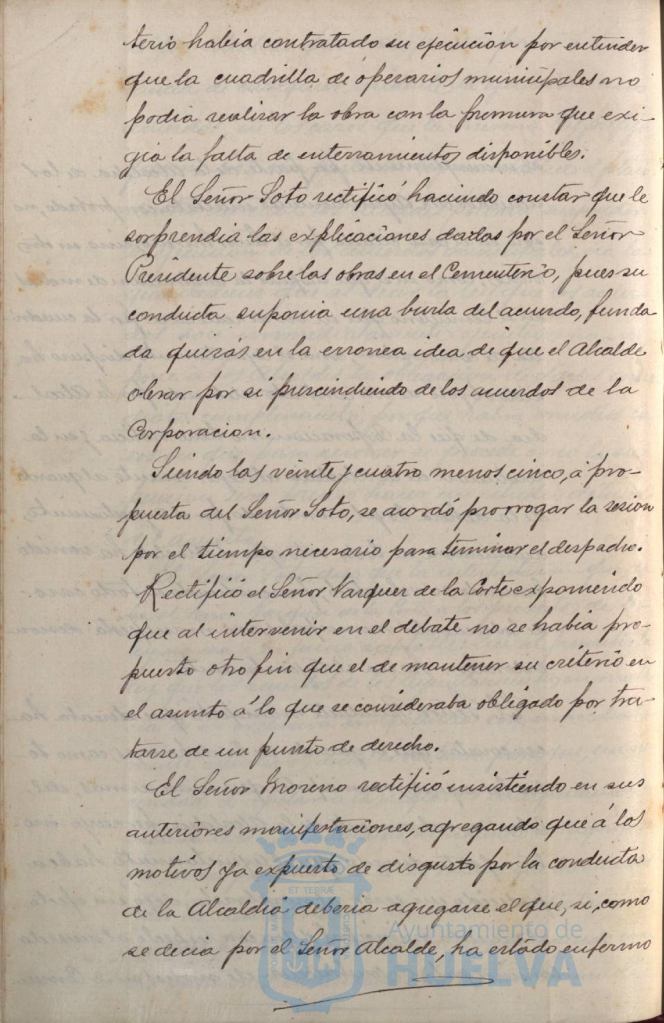 terio habia contratado su ejecucion por entender
que la cuadrilla de operarios municipales no
podia realizar la obra con la premura que exi-
gia la falta de enterramientos disponibles.
El Señor Soto rectificó haciendo constar que le
sorprendia las explicaciones dadas por el Señor
Presidente sobre las obras en el Cementerio, pues su
conducta suponia una burla del acuerdo, funda-
da quizás en la erronea idea de que el Alcalde
obrar por si prescindiendo de los acuerdos de la
Corporacion.
Siendo las veinte y cuatro menos cinco, á pro-
puesta del Señor Soto, se acordó prorrogar la sesion
por el tiempo necesario para terminar el despacho.
Rectificó el Señor Vazquez de la Corte exponiendo
que al intervenir en el debate no se habia pro-
puesto otro fin que el de mantener su criterio en
el asunto á lo que se consideraba obligado por tra-
tarse de un punto de derecho.
El Señor Moreno rectificó insistiendo en sus
anteriores manifestaciones, agregando que á los
motivos ya expuesto de disgusto por la conducta
de la Alcaldia deberia agregarse el que, si, como
se decia por el Señor Alcalde, ha estado enfermo
ET TERRÆ
Ayuntamiento de
HUELVA